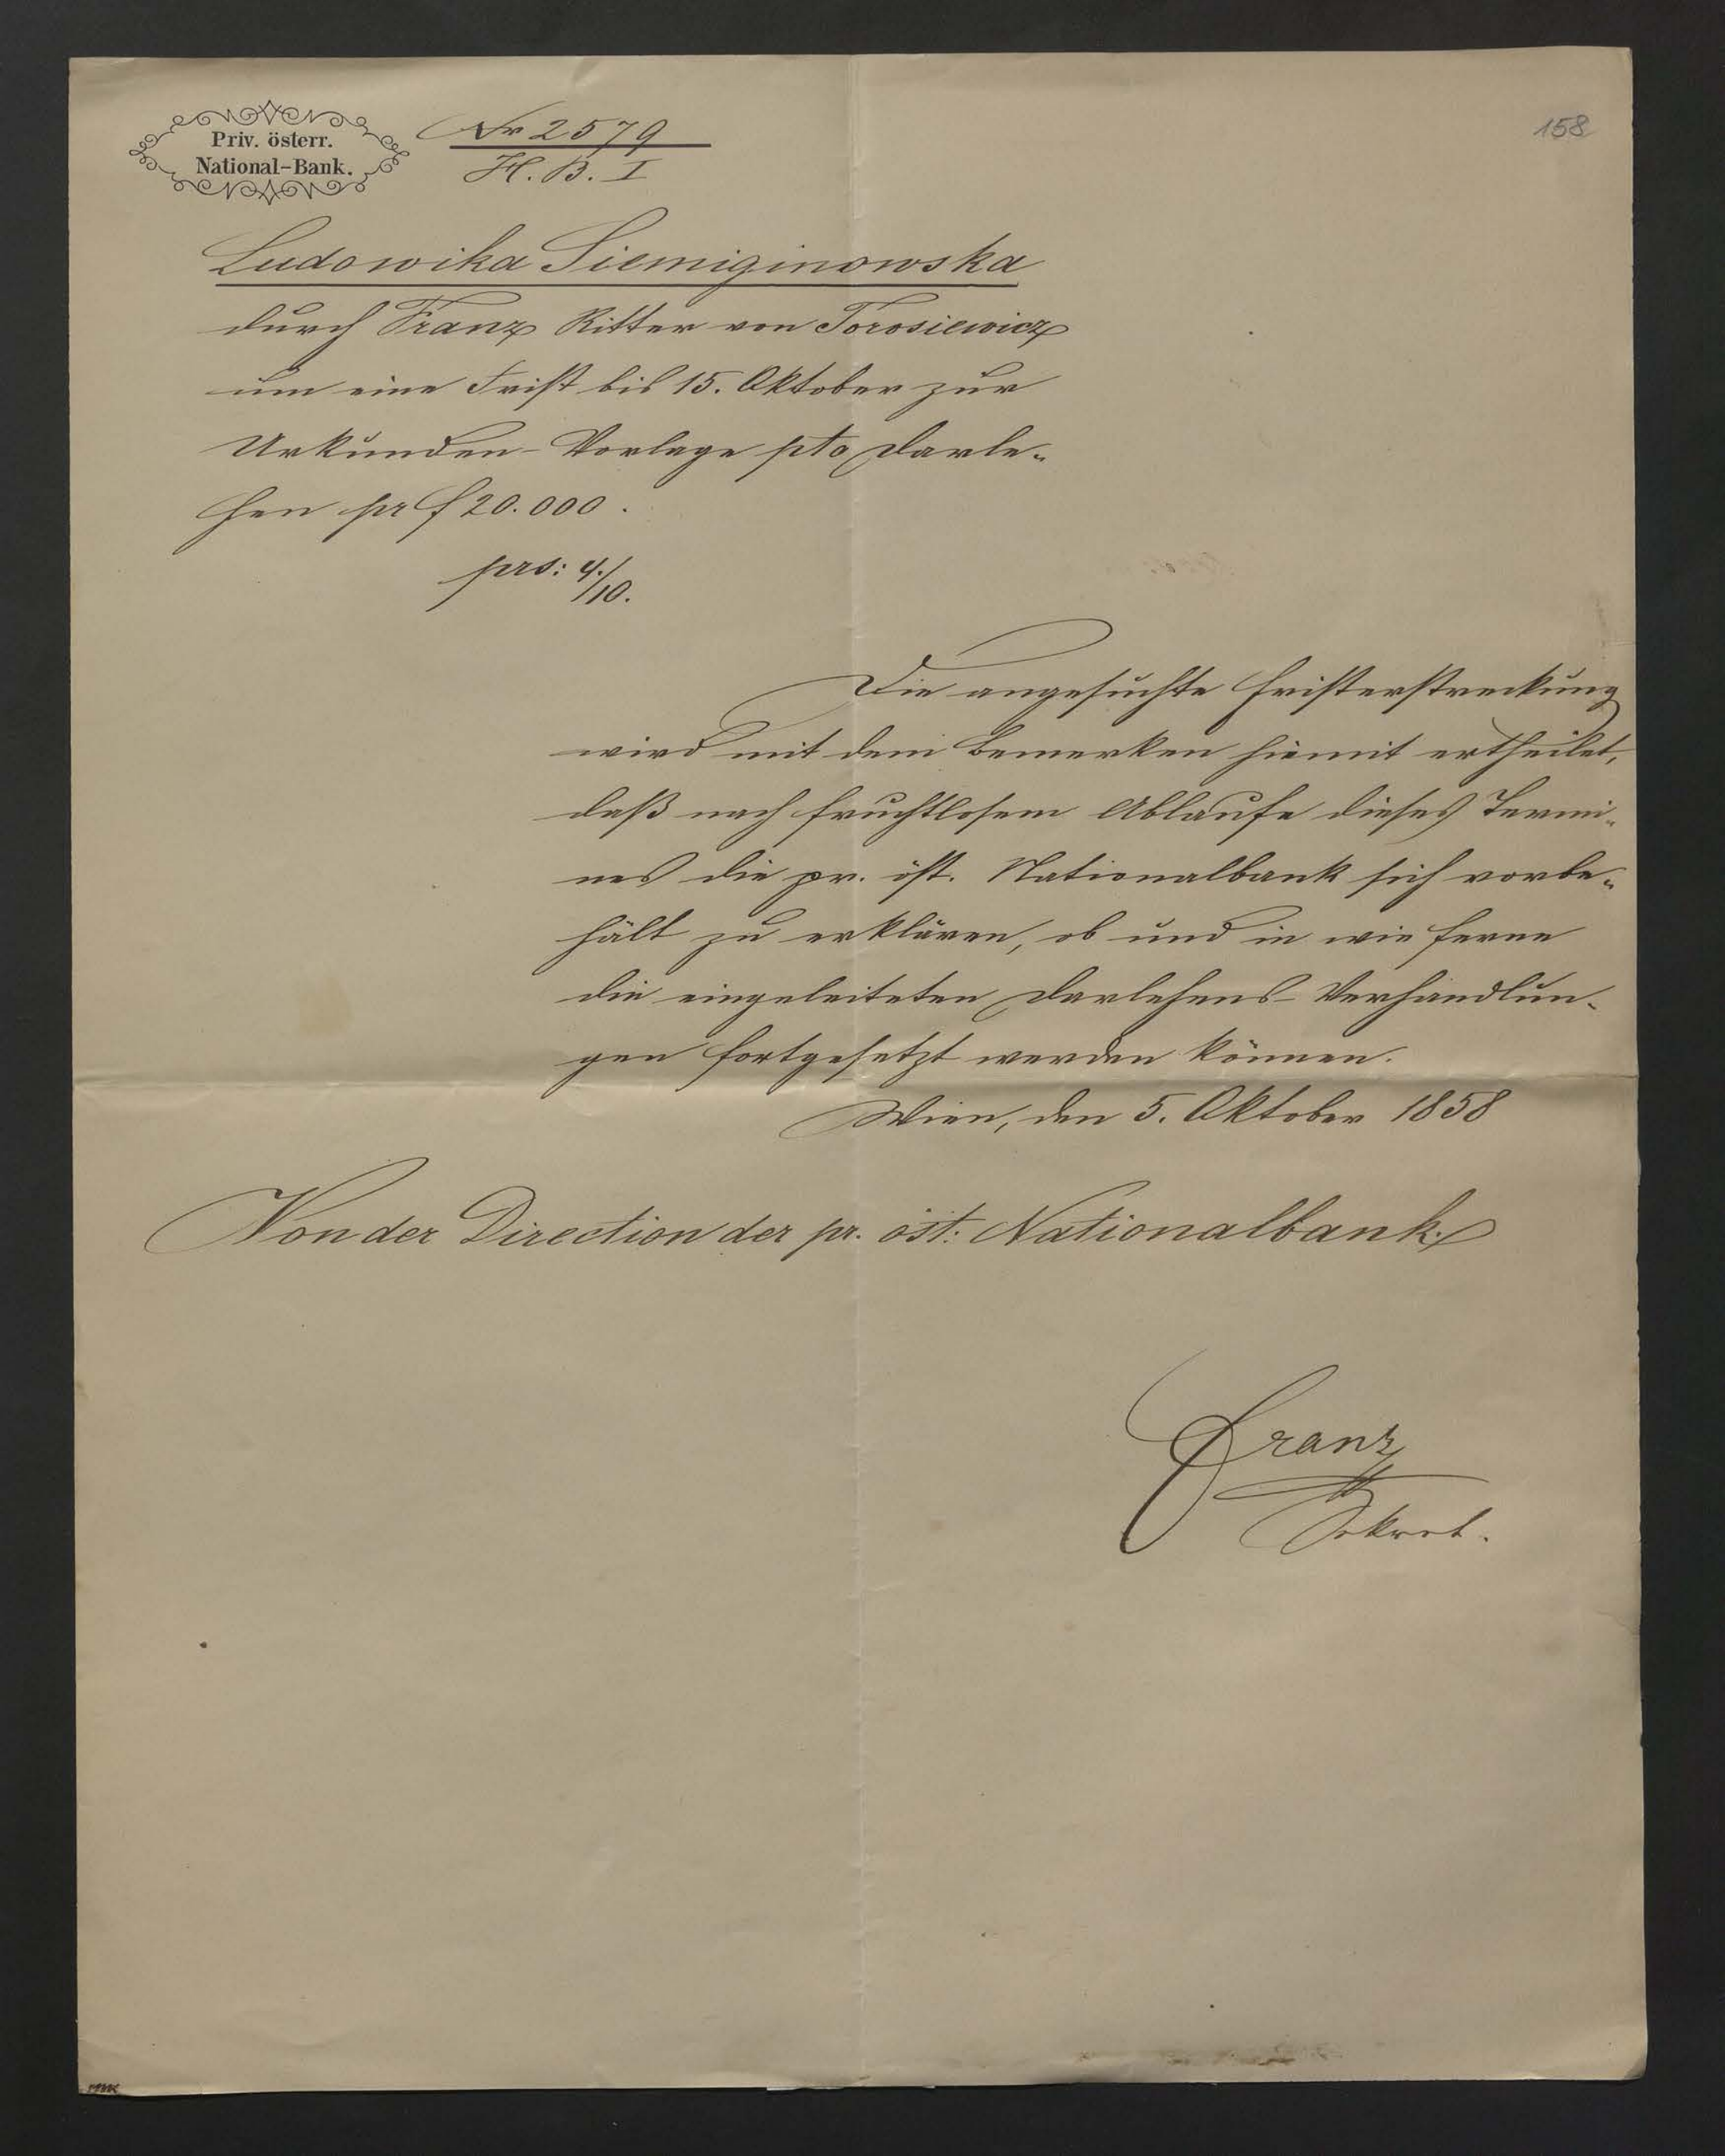 Priv. österr.
National-Bank.
Nr 2579
H. B. I
158
Ludowika Siemiginowska
durch Franz Ritter von Torosiewicz
um eine Frist bis 15. Oktober zur
Urkunden-Vorlage pto Darle-
hen pr f 20.000.
prs: 4./10.
Die angesuchte Fristerstreckung
wird mit dem Bemerken hiemit ertheilet,
daß nach fruchtlosem Ablaufe dieses Termi-
nes die pr. öst. Nationalbank sich vorbe-
hält zu erklären, ob und in wie ferne
die eingeleiteten Darlehens-Verhandlun-
gen fortgesetzt werden können.
Wien, den 5. Oktober 1858
Von der Direction der pr. öst: Nationalbank.
Franz
Sekret.